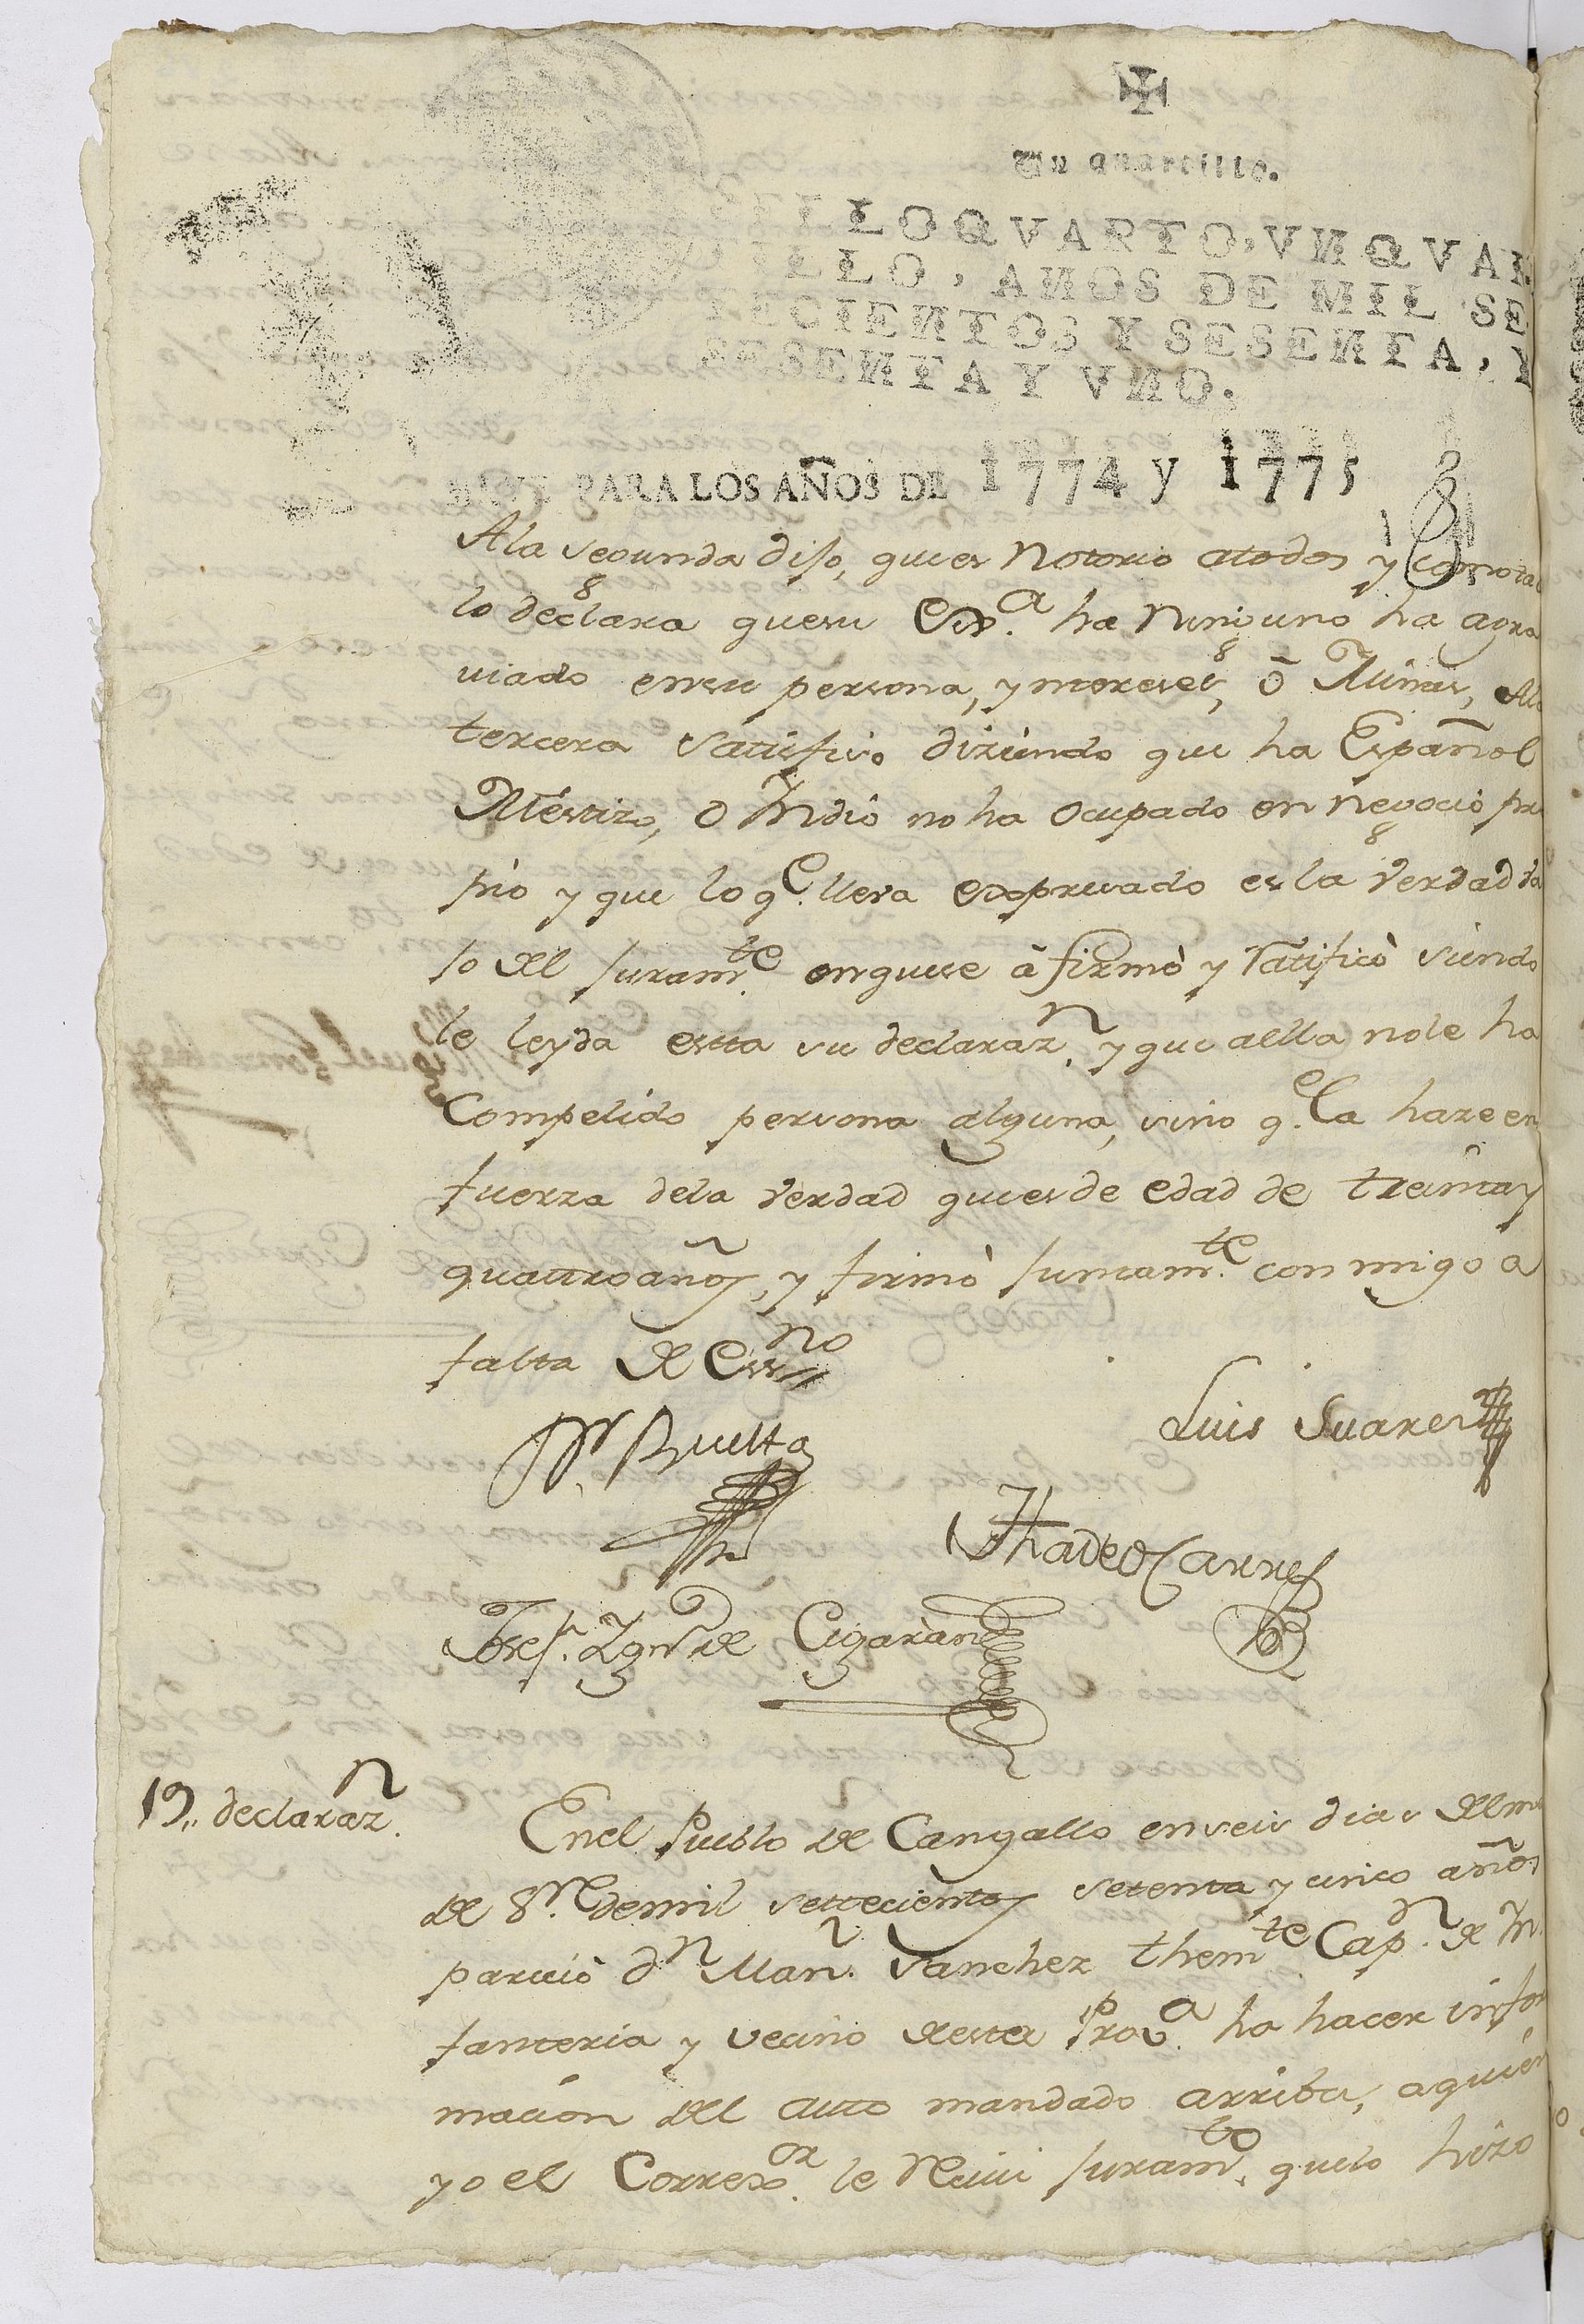 Un quartillo.
SELLO QVARTO, VN QVAR
TILLO, AÑOS DE MIL SE
TECIENTOS Y SESENTA, Y
SESENTA Y VNO.
PARA LOS AÑOS DE 1774 y 1775
A la segunda dijo, que es Notorio atodos y como tal
lo declara que su Exs.a ha Ninguno ha agra
uiado ensu persona, yntereses, ó Minas, Ala
tercera satisfiso diziendo que ha Español
Mestizo, o Yndio no ha ocupado en negocio pro
pio y que lo q.e lleva expresado es la verdad va
jo del juram.te enquese afirmò y ratificò siendo
le leyda estta su declaraz.n y que aella nole ha
Compelido persona alguna, sino q.e la haze en
fuerza dela verdad que es de edad de treinta y
quattro años, y firmò juntam.te conmigo a
falta de Ess.no
Ruelta
Luis Suarez
Thadeo Carre
Josef. Ygn.o de Cigaràn
19,, declaraz.n
Enel Pueblo de Cangallo enseis dias del m
de 8.re demil settecientos setenta y cinco años
pareciò d.n Man.l Sanchez Them.te Cap.n de Yn
fanteria y vecino desta Prov.a ha hacer infor
macion del auto mandado arriba, aquien
yo el Correx.or le Reciui juram.to quelo hizo